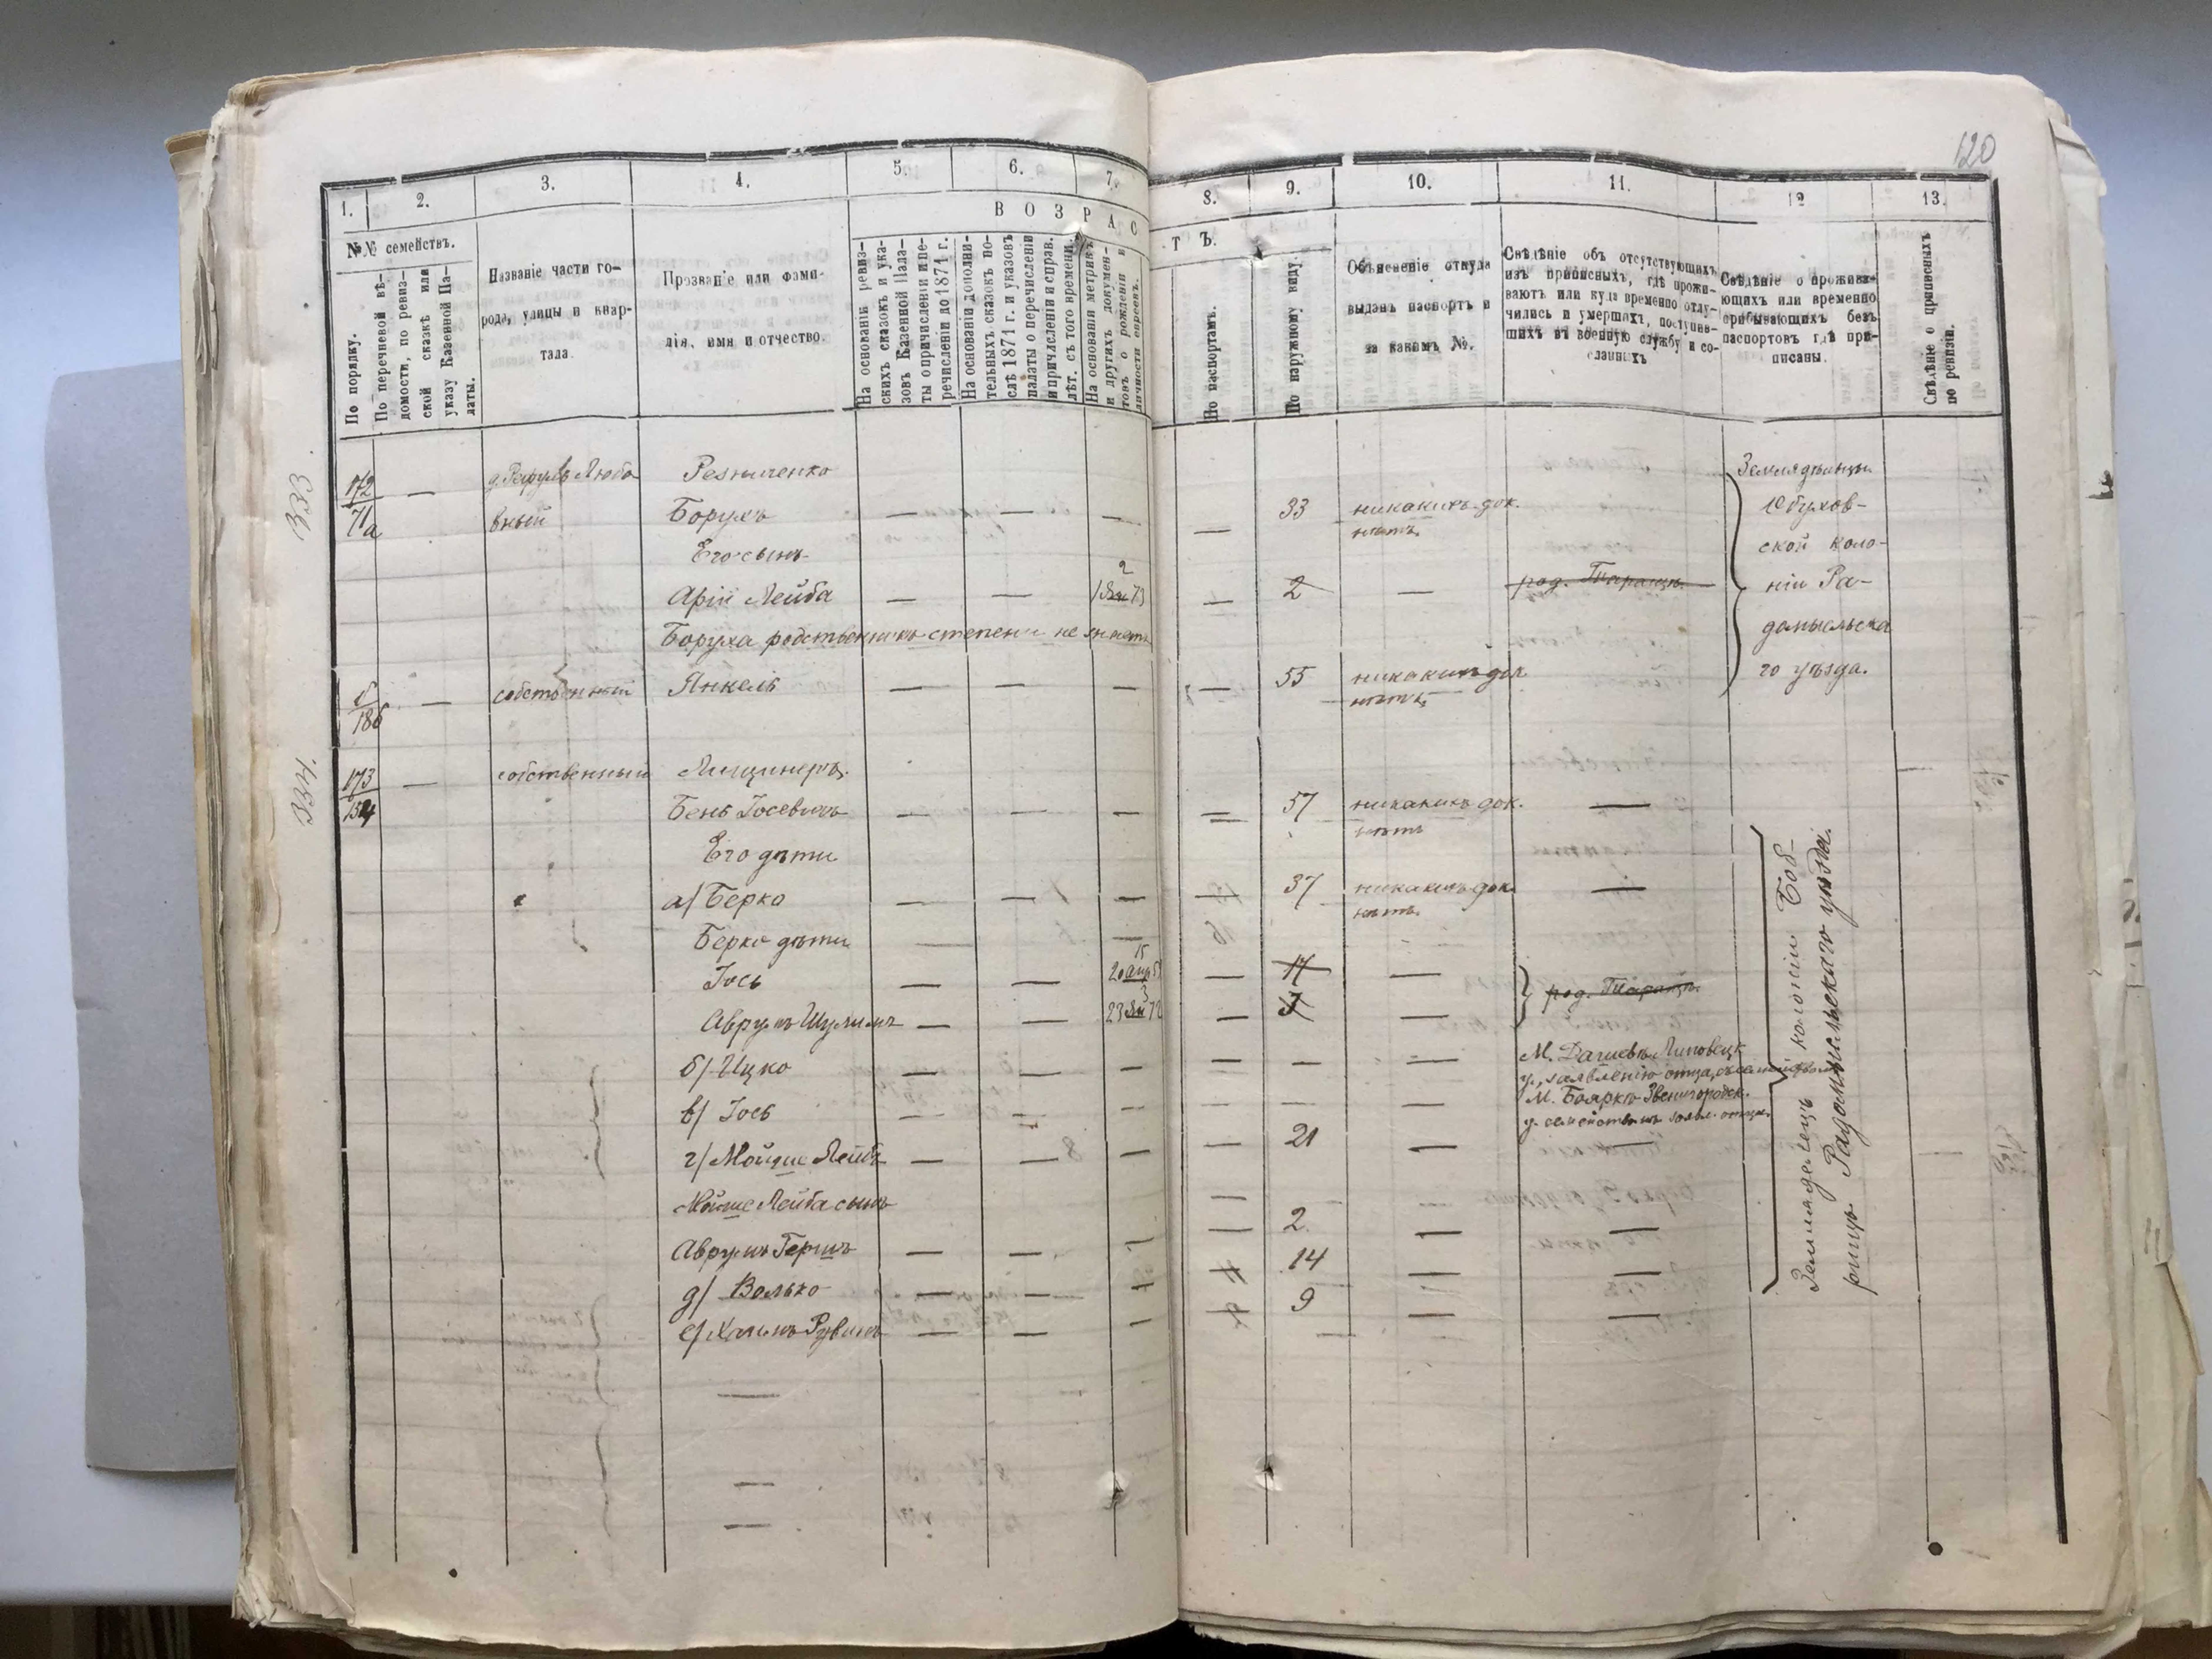 120
1. 2. 3. 4. 5. 6. 7. 8. 9. 10. 11. 12 13.
В О З Р А С Т Ъ.
№№ семействъ.
По порядку.
По перечневой вѣ-
домости, по ревиз-
ской сказкѣ или
указу Казенной Па-
латы.
Названіе части го-
рода, улицы и квар-
тала.
Прозваніе или фами-
лія, имя и отчество.
На основаніи ревиз-
скихъ сказокъ и ука-
зовъ Казенной Пала-
ты о причисленіи и пе-
речисленіи до 1871 г.
На основаніи дополни-
тельныхъ сказокъ по-
слѣ 1871 г. и указовъ
палаты о перечисленіи
и причисленіи и справ.
лѣт. съ того времени.
На основаніи метрикъ
и другихъ докумен-
товъ о рожденіи и
личности евреевъ.
По паспортамъ.
По наружному виду.
Объясненіе откуда
выданъ паспортъ и
за какимъ №.
Свѣдѣніе объ отсутствующихъ
изъ приписныхъ, гдѣ прожи-
ваютъ или куда временно отлу-
чились и умершихъ, поступив-
шихъ въ военную службу и со-
сланныхъ
Свѣдѣніе о прожива-
ющихъ или временно
прибывающихъ безъ
паспортовъ гдѣ при-
писаны.
Свѣдѣніе о приписныхъ
по ревизіи.
333.
172
71а
— Резниченко
вный Борухъ — — — — 33 никакихъ док.
нѣтъ
Его сынъ
Арій Лейба — — 2 73 — 2 — род. Таращѣ
Боруха родственникъ степени не знаетъ
186 — собственный Янкель — — — — 55 никакихъ док
нѣтъ
Земледѣльцы
Обухов-
ской коло-
ніи Ра-
домысльска
го уѣзда.
334.
173
— собственный
Бень Іосевичъ — — — — 57 никакихъ док. —
нѣтъ
Его дѣти
а/ Берко — — — — 37 никакихъ док. —
нѣтъ
Берко дѣти
Іось — — 15 — 17 —
Аврумъ Шулимъ — — 3 23 72 — —
род. Таращѣ
б/ Ицко — — — — — —
М. Липовецк
у., заявленію отца, съ семействомъ
в/ Іось — — — — — —
М. Боярка Звенигородск.
у. семействомъ заявл. отца.
г/ Мойше Лейба — — — — 21 — —
Мойше Лейба сынъ
Аврумъ Гершъ — — — — 2. — —
д/ Волько — — — 14 — —
е/ Хаимъ Рувинъ — — — 9 — —
Земледѣлецъ колоніи Боб-
рицы Радомысльскаго уѣзда.